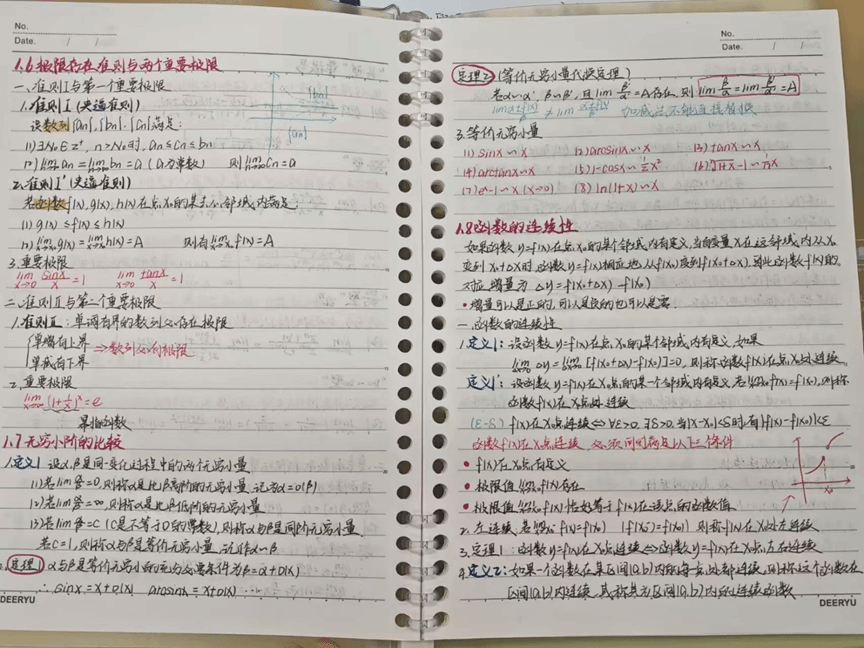 No.
Date. / /
1.6 极限存在准则与两个重要极限
一、准则I与第一个重要极限
1.准则I（夹逼准则）
设数列{an},{bn},{cn}满足:
(1)∃N0∈Z⁺, n>N0时, an≤cn≤bn
(2) lim n→∞ an = lim n→∞ bn = a (a为常数) 则 lim n→∞ cn = a
{bn}
{an}
2.准则I'（夹逼准则）
若函数f(x),g(x),h(x)在点x0的某去心邻域内满足:
(1) g(x)≤f(x)≤h(x)
(2) lim x→x0 g(x) = lim x→x0 h(x) = A 则有 lim x→x0 f(x) = A
3.重要极限
lim x→0 sinx/x = 1 lim x→0 tanx/x = 1
二、准则II与第二个重要极限
1.准则II: 单调有界的数列必存在极限
单增有上界
单减有下界
⇒数列必有极限
2.重要极限
lim x→∞ (1+1/x)^x = e
幂指函数
1.7 无穷小阶的比较
1.定义1 设α,β是同一变化过程中的两个无穷小量
=0,则称α是比β高阶的无穷小量,记为α=o(β)
(2)若lim =∞,则称α是比β低阶的无穷小量
=C (C是不等于0的常数),则称α与β是同阶无穷小量
若C=1,则称α与β是等价无穷小量,记作α~β
定理1 α与β是等价无穷小的充分必要条件为β=α+o(α)
∴ sinx=x+o(x) arcsinx=x+o(x) ...
DEERYU
No.
Date. / /
定理2（等价无穷小量代换定理）
若α~α', β~β', 且lim β'/α' = A存在,则 lim β/α = lim β'/α' = A
加减法不能直接替换
3.等价无穷小量
(1) sinx~x (2) arcsinx~x (3) tanx~x
(4) arctanx~x (5) 1-cosx~½x² (6) ⁿ√(1+x)-1~(1/n)x
(7) eˣ-1~x (x→0) (8) ln(1+x)~x
1.8 函数的连续性
如果函数y=f(x)在点x0的某个邻域内有定义,当自变量x在这邻域内从x0
变到x0+Δx时,函数y=f(x)相应地从f(x0)变到f(x0+Δx),因此函数f(x)的
对应增量为 Δy=f(x0+Δx)-f(x0)
•增量可以是正的,可以是负的也可以是零.
一、函数的连续性
1.定义1: 设函数y=f(x)在点x0的某个邻域内有定义,如果
lim Δx→0 Δy = lim Δx→0 [f(x0+Δx)-f(x0)]=0, 则称函数f(x)在点x0处连续.
定义1': 设函数y=f(x)在x0点的某一个邻域内有定义,若lim x→x0 f(x)=f(x0),则称
函数f(x)在x0点处连续
(ε-δ) f(x)在x0点连续⇔∀ε>0,∃δ>0,当|x-x0|<δ时,有|f(x)-f(x0)|<ε
函数f(x)在x0点连续,必须同时满足以下三条件
•f(x)在x0点有定义
•极限值lim x→x0 f(x)存在
•极限值lim x→x0 f(x)恰好等于f(x)在该点的函数值
x0
2.左连续: 若 f(x)=f(x0) (f(x0⁻)=f(x0)) 则称f(x)在x0处左连续
3.定理1: 函数y=f(x)在x0点连续⇔函数y=f(x)在x0点左右连续
4.定义2: 如果一个函数在某区间(a,b)内的每点处都连续,则称这个函数在
区间(a,b)内连续,或称其为区间(a,b)内的连续函数
DEERYU